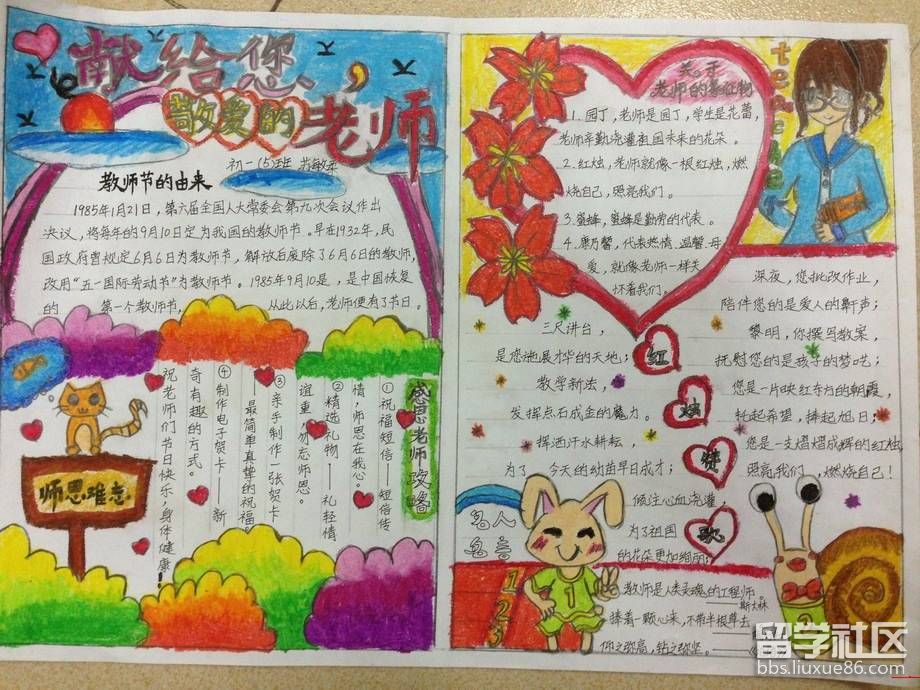 献给您、
敬爱的老师
初一(5)班
教师节的由来
1985年1月21日，第六届全国人大常委会第九次会议作出
决议，将每年的9月10日定为我国的教师节。早在1932年，民
国政府曾规定6月6日为教师节，解放后废除了6月6日的教师节，
改用“五一国际劳动节”为教师节。1985年9月10是，是中国恢复
的 第一个教师节， 从此以后，老师便有了节日。
感恩老师攻略
①祝福短信——短信传
情，师恩在我心。
②精选礼物——礼轻情
谊重，勿忘师恩。
③亲手制作一张贺卡
——最简单真挚的祝福
④制作电子贺卡——新
奇有趣的方式。
祝老师们节日快乐，身体健康！
师恩难忘
关于
老师的象征物
1. 园丁，老师是园丁，学生是花蕾，
老师辛勤浇灌祖国未来的花朵。
2. 红烛，老师就像一根红烛，燃
烧自己，照亮我们。
3. 蜜蜂，蜜蜂是勤劳的代表。
4. 康乃馨，代表热情、温馨、母
爱，就像老师一样关
怀着我们。
teacher
三尺讲台，
是您施展才华的天地；
教学新法，
发挥点石成金的魔力。
挥洒汗水耕耘，
为了 今天的幼苗早日成才；
倾注心血浇灌，
为了祖国
的花朵更加绚丽；
红
烛
赞
歌
深夜，您批改作业，
陪伴您的是爱人的鼾声；
黎明，你撰写教案，
抚慰您的是孩子的梦呓；
您是一片映红东方的朝霞，
托起希望，捧起旭日；
您是一支熠熠成辉的红烛，
照亮我们，燃烧自己！
名人
名言
1
2
3
1
教师是人类灵魂的工程师。
——斯大林
捧着一颗心来，不带半根草去
仰之弥高，钻之弥坚。
留学社区
bbs.liuxue86.com